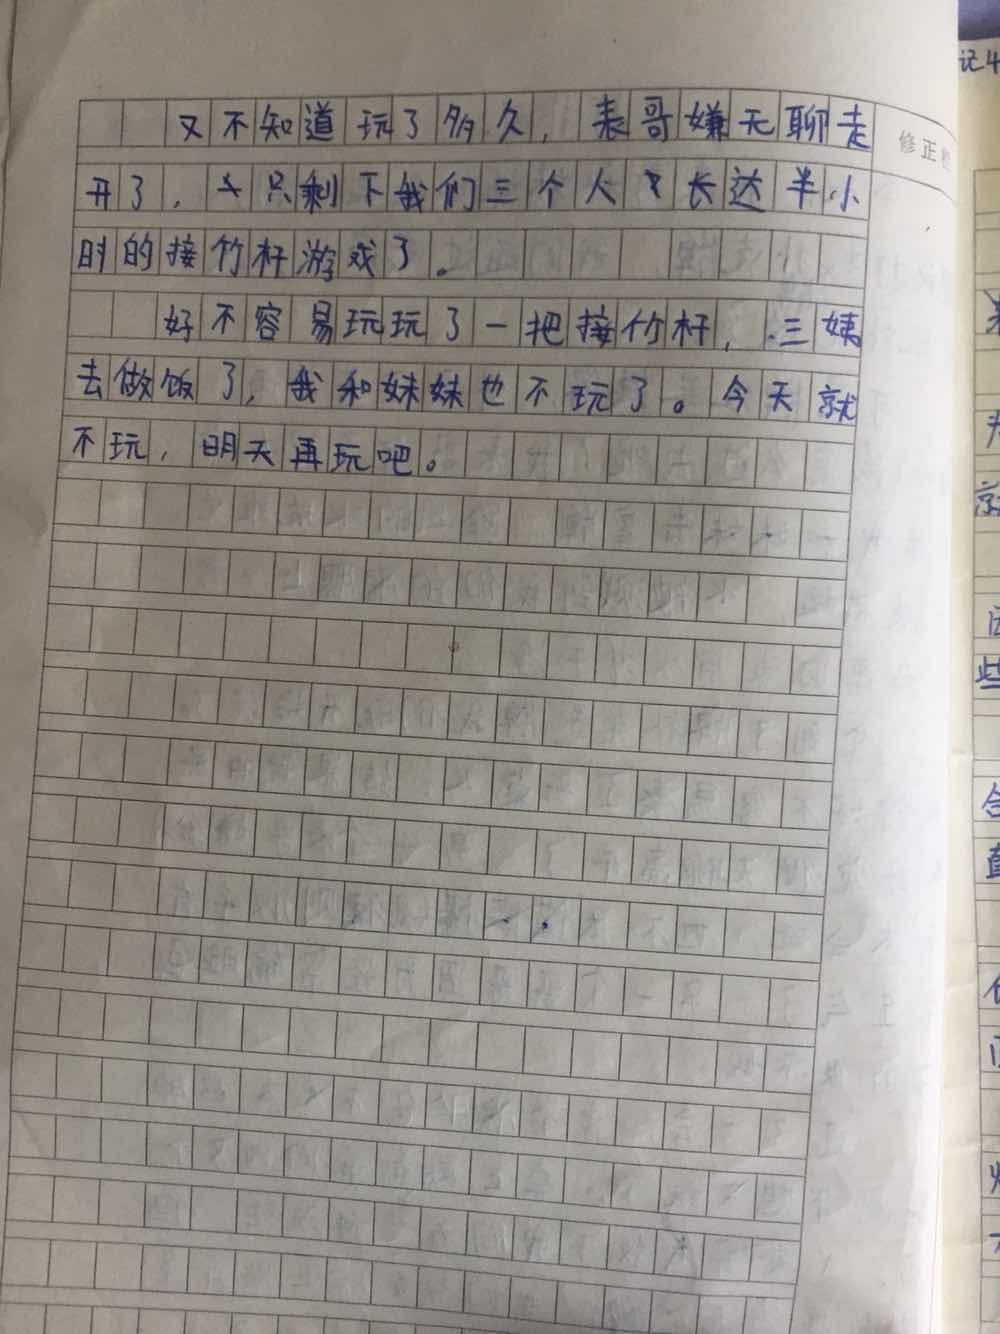 又不知道玩了多久，表哥嫌无聊走
开了，只剩下我们三个人长达半小
时的接竹杆游戏了。
好不容易玩玩了一把接竹杆，三姨
去做饭了，我和妹妹也不玩了。今天就
不玩，明天再玩吧。
修正
记4
些